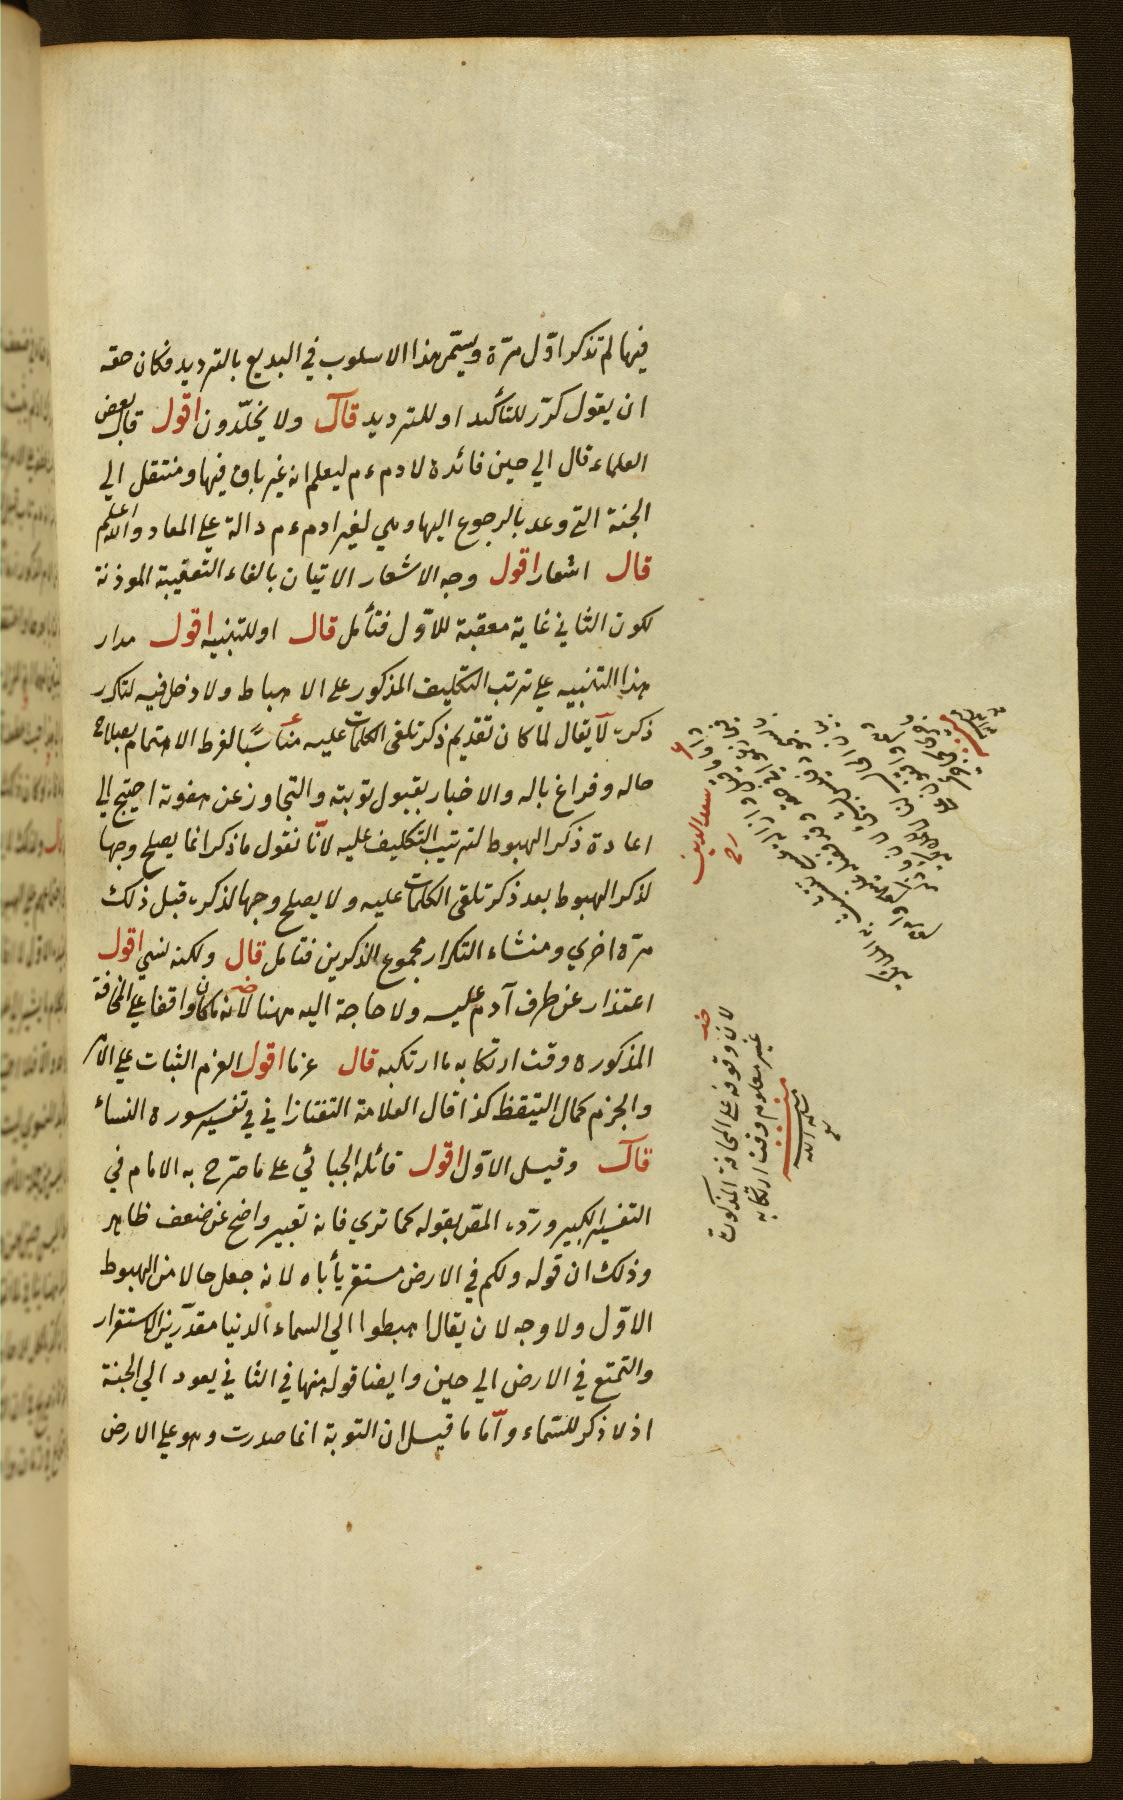 فيها لم تذكر اوّل مرّة ويسمّى هذا الاسلوب في البديع بالترديد فكان حقه
ان يقول كرّر للتأكيد او للترديد قال ولا يخلّدون اقول قال بعض
العلماء قال الى حين فائدة لادم ءم ليعلم انه غير باق فيها ومنتقل الى
الجنة التي وعد بالرجوع اليها وهي لغير ادم ءم دالة على المعاد والله اعلم
قال اشعار اقول وجه الاشعار الاتيان بالفاء التعقيبة الموذنة
لكون الثاني غاية معقبة للاوّل فتأمل قال او للتنبيه اقول مدار
هذا التنبيه على ترتب التكليف المذكور على الاهباط ولا دخل فيه لتكرر
ذكره لا يقال لما كان تقديم ذكر تلقى الكلمات عليه مناسبًا لفرط الاهتمام بصلاح
حاله وفراغ باله والاخبار بقبول توبته والتجاوز عن هفوته احتيج الى
اعادة ذكر الهبوط لترتيب التكليف عليه لانّا نقول ما ذكر انما يصلح وجها
لذكر الهبوط بعد ذكر تلقى الكلمات عليه ولا يصلح وجها لذكره قبل ذلك
مرّة اخرى ومنشاء التكرار مجموع الذكرين فتامل قال ولكنه نسي اقول
اعتذار عن طرف آدم عليه ولا حاجة اليه ههنا لانه ما كان واقفا على المخافة
المذكورة وقت ارتكابه ما ارتكبه قال عزما اقول العزم الثبات على الامر
والجزم كمال التيقظ كذا قال العلامة التفتازاني في تفسير سورة النساء
قال وقيل الاوّل اقول قائله الجبائي على ما صرّح به الامام في
التفسير الكبير وردّه المقر بقوله كما ترى فانه تعبير واضح عن ضعف ظاهر
وذلك ان قوله ولكم في الارض مستقر يأباه لانه جعل حالا من الهبوط
الاوّل ولا وجه لان يقال اهبطوا الى السماء الدنيا مقدّرين الاستقرار
والتمتع في الارض الى حين وايضا قوله منها في الثاني يعود الى الجنة
اذ لا ذكر للسّماء وامّا ما قيل ان التوبة انما صدرت وهو على الارض
سعد الدين
رح
لان وقوفه على المخافة المذكورة
غير معلوم وقت ارتكابه
منه